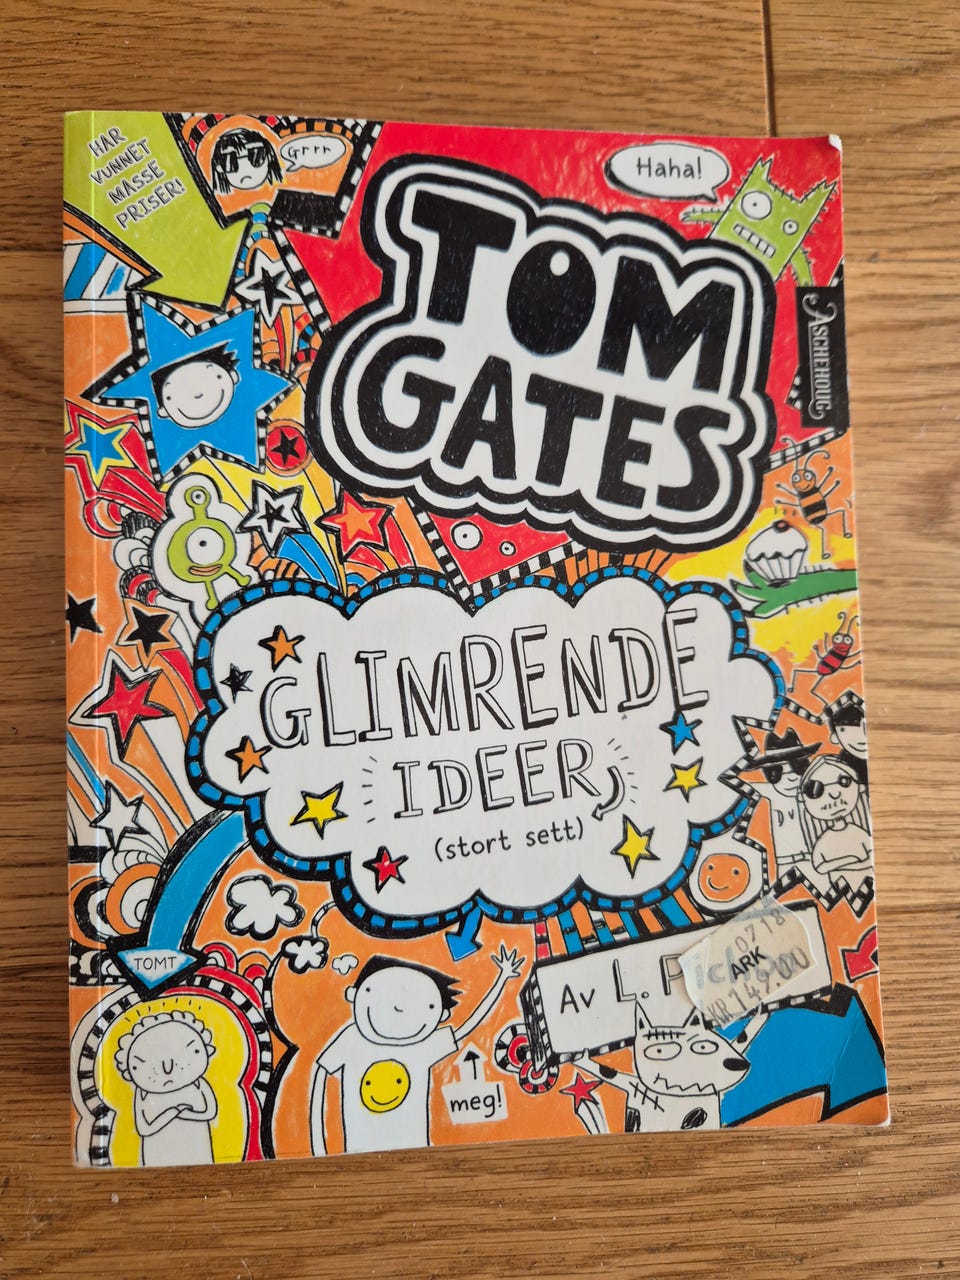 HAR
VUNNET
MASSE
PRISER!
Grrr
Haha!
TOM
GATES
ASCHEHOUG
GLIMRENDE
IDEER
(stort sett)
TOMT
meg!
Av L. P
07 18
ARK
KR. 149.00